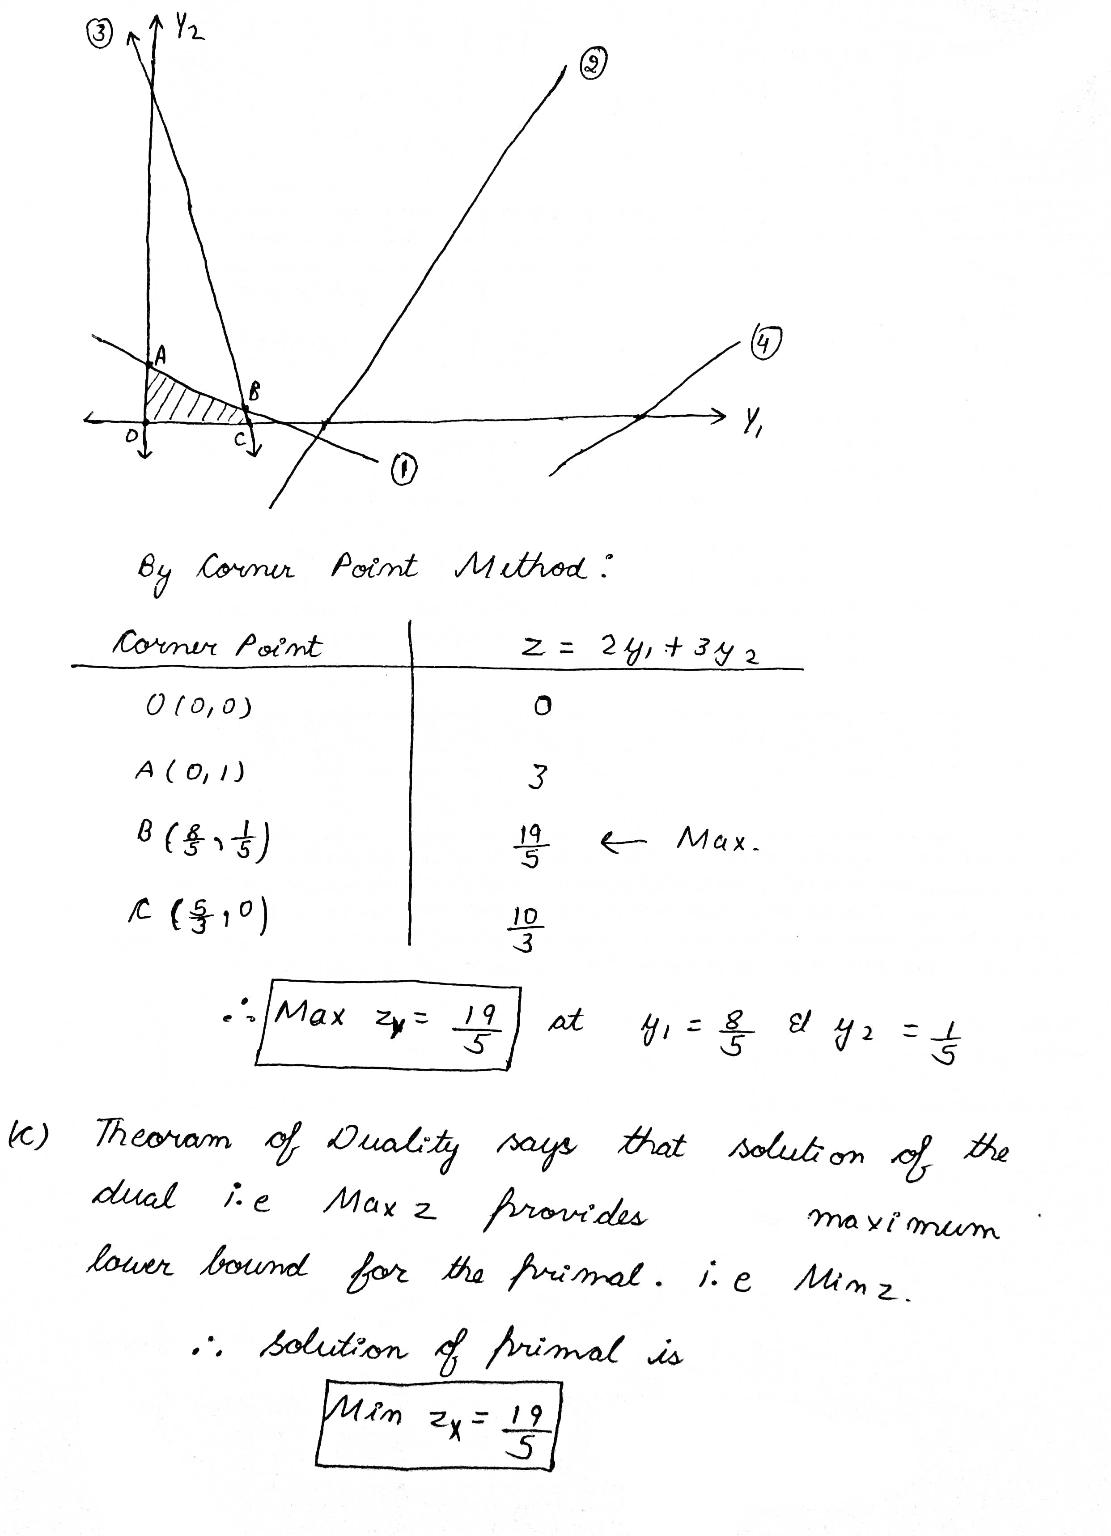 ③ Y₂
②
④
A
B
O C Y₁
①
By Corner Point Method :
Corner Point z = 2y₁ + 3y₂
O (0,0) 0
A (0,1) 3
B (8/5, 1/5) 19/5 ← Max.
C (5/3, 0) 10/3
∴ Max zy = 19/5 at y₁ = 8/5 & y₂ = 1/5
(c) Theoram of Duality says that solution of the
dual i.e Max z provides maximum
lower bound for the primal. i.e Min z.
∴ solution of primal is
Min zx = 19/5